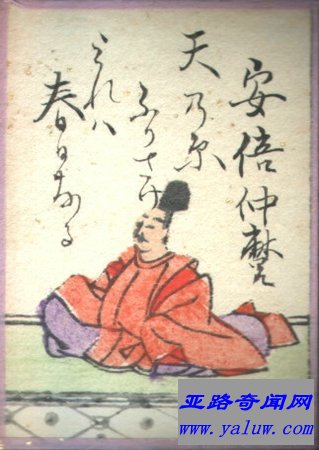 安倍仲麿
天乃原
ふりさけ
みれハ
春日なる
亚路奇闻网
www.yaluw.com